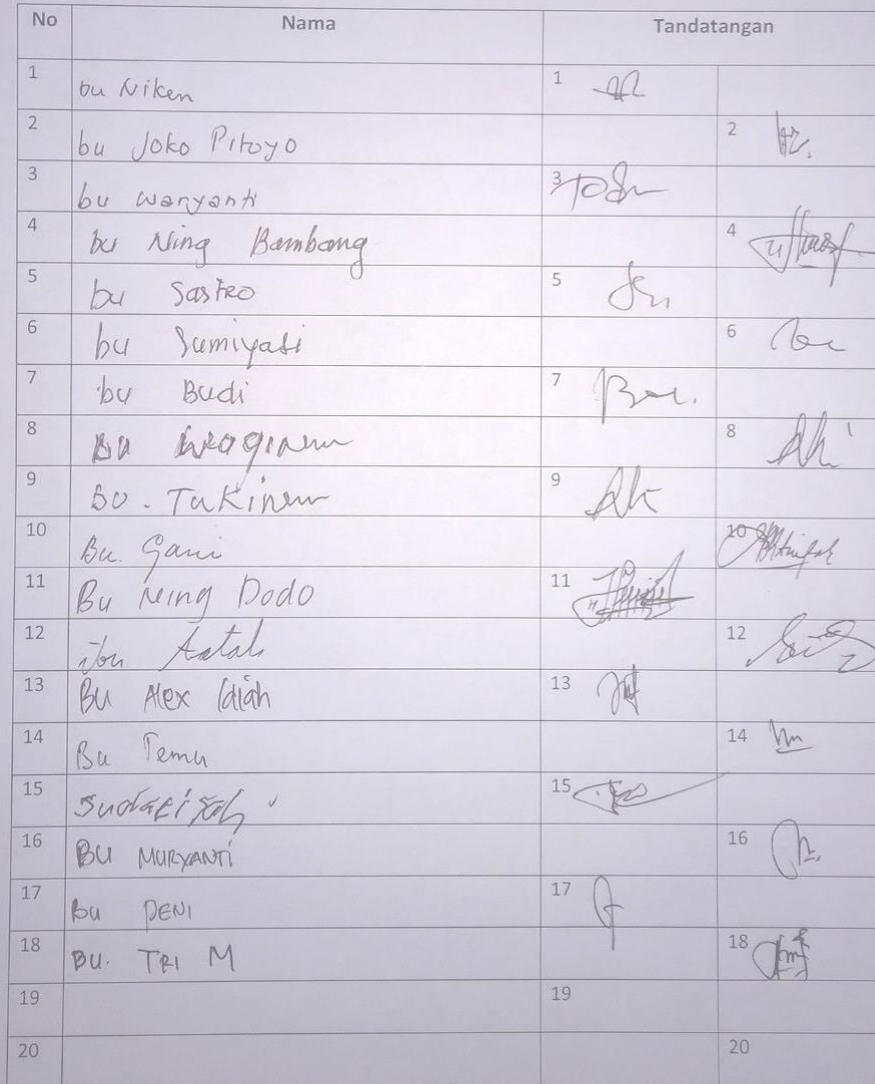 No Nama Tandatangan
1 bu Niken 1
2 bu Joko Pitoyo 2
3 bu Waryanti 3
4 bu Ning Bambang 4
5 bu Sastro 5
6 bu Sumiyati 6
7 bu Budi 7
8 Bu Waginem 8
9 Bu. Tukinem 9
10 Bu. Gani 10
11 Bu Ning Dodo 11
12 ibu 12
13 Bu Alex 13
14 Bu Temu 14
15 15
16 BU MURYANTI 16
17 Bu DENI 17
18 BU. TRI M 18
19 19
20 20